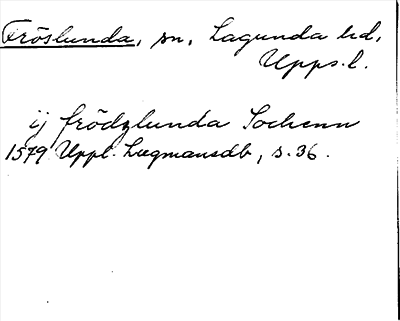 Fröslunda, sn, Lagunda hd,
Upps. l.
ij frödzlunda Sochenn
1579 Uppl. Lagmansdb, s. 36.